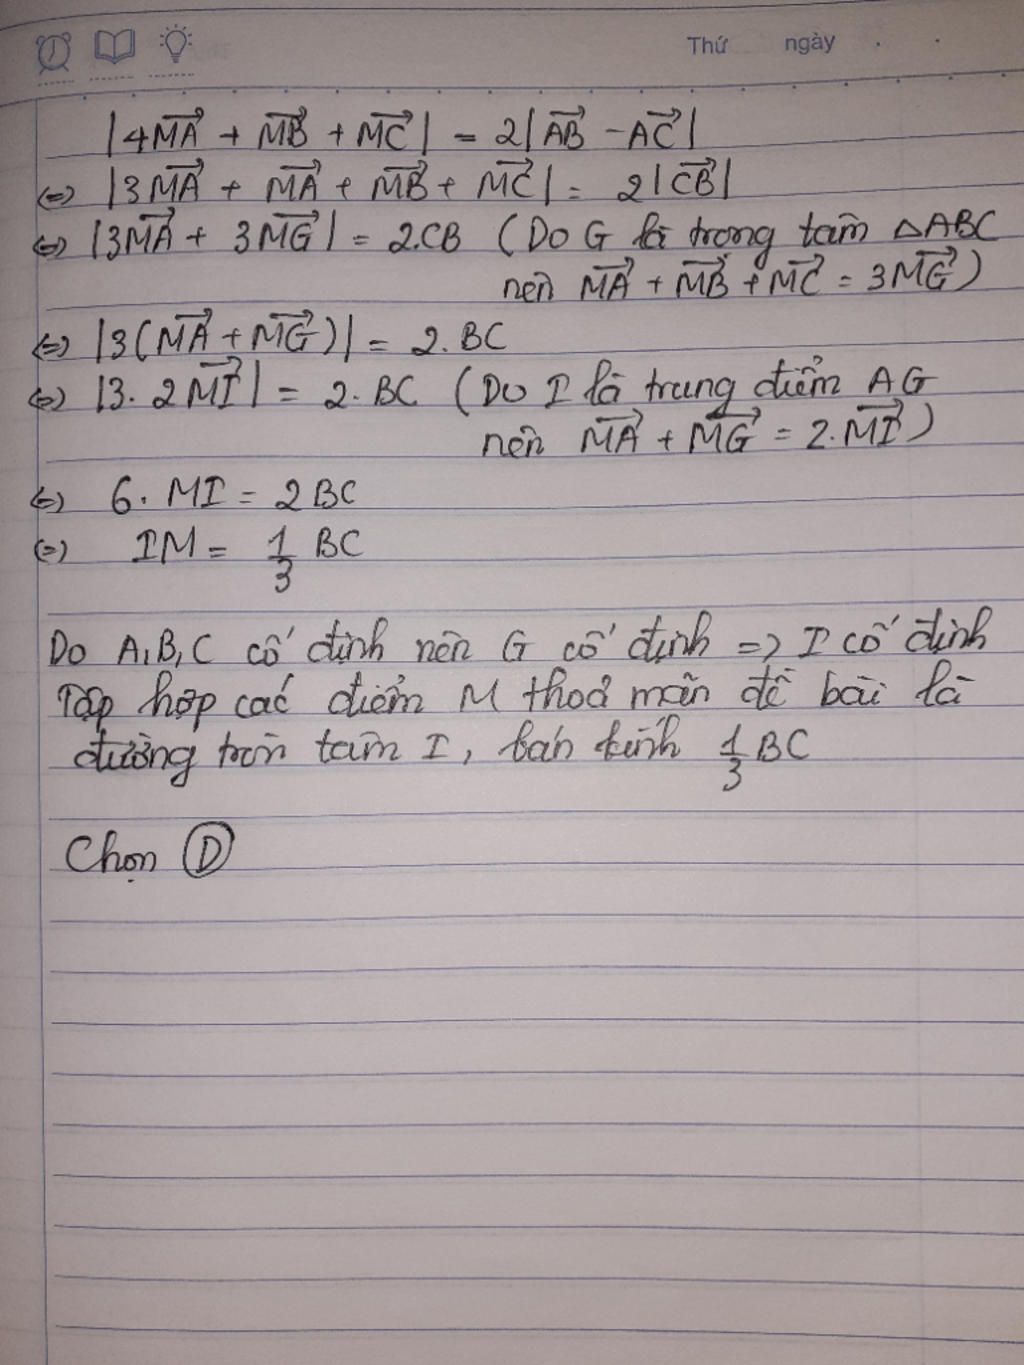 Thứ ngày
|4MA⃗ + MB⃗ + MC⃗| = 2|AB⃗ - AC⃗|
(=) |3MA⃗ + MA⃗ + MB⃗ + MC⃗| = 2|CB⃗|
(=) |3MA⃗ + 3MG⃗| = 2.CB (Do G là trọng tâm △ABC
nên MA⃗ + MB⃗ + MC⃗ = 3MG⃗)
(=) |3(MA⃗ + MG⃗)| = 2.BC
(=) |3.2MI⃗| = 2.BC (Do I là trung điểm AG
nên MA⃗ + MG⃗ = 2.MI⃗)
(=) 6.MI = 2BC
(=) IM = 1/3 BC
Do A,B,C cố định nên G cố định => I cố định
Tập hợp các điểm M thoả mãn đề bài là
đường tròn tâm I, bán kính 1/3 BC
Chọn D